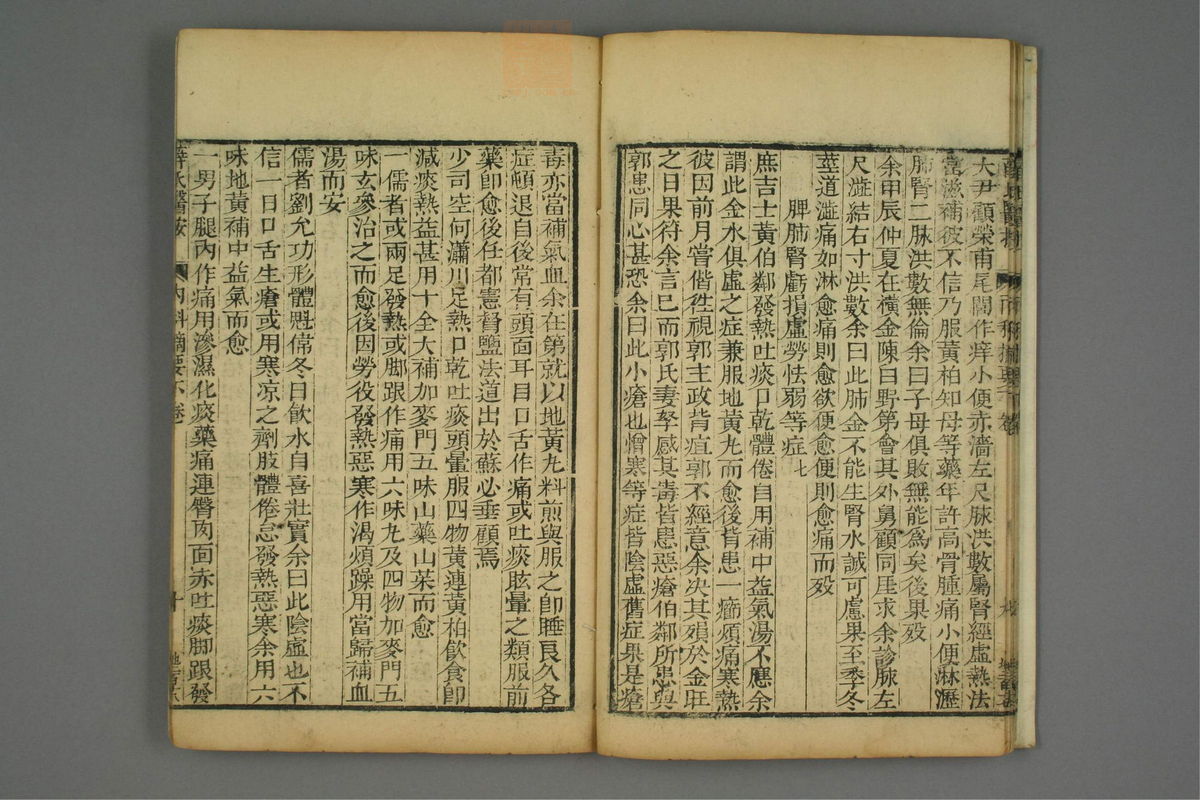 大尹顧榮甫尾閭作痒小便赤濇左尺脉洪數屬腎經虛熱法
當滋補彼不信乃服黃柏知母等藥年許高骨腫痛小便淋瀝
肺腎二脉洪數無倫余曰子母俱敗無能爲矣後果歿
余甲辰仲夏在橫金陳白野第會其外舅顧同厓求余診脉左
尺濇結右寸洪數余曰此肺金不能生腎水誠可慮果至季冬
莖道澁痛如淋愈痛則愈欲便愈便則愈痛而歿
脾肺腎虧損虛勞怯弱等症七
庶吉士黃伯鄰發熱吐痰口乾體倦自用補中益氣湯不應余
謂此金水俱虛之症兼服地黃丸而愈後背患一癤煩痛寒熱
彼因前月嘗偕往視郭主政背疽郭不經意余决其殞於金旺
之日果符余言已而郭氏妻孥感其毒皆患惡瘡伯鄰所患與
郭患同心甚恐余曰此小瘡也憎寒等症皆陰虛舊症果是瘡
毒亦當補氣血余在第就以地黃丸料煎與服之卽睡良久各
症頓退自後常有頭面耳目口舌作痛或吐痰眩暈之類服前
藥卽愈後任都憲督鹽法道出於蘇必垂顧焉
少司空何瀟川足熱口乾吐痰頭暈服四物黃連黃柏飮食卽
減痰熱益甚用十全大補加麥門五味山藥山茱而愈
一儒者或兩足發熱或脚跟作痛用六味丸及四物加麥門五
味玄參治之而愈後因勞役發熱惡寒作渴煩躁用當歸補血
湯而安
儒者劉允功形體魁偉冬日飮水自喜壯實余曰此陰虛也不
信一日口舌生瘡或用寒凉之劑肢體倦怠發熱惡寒余用六
味地黃補中益氣而愈
一男子腿內作痛用滲濕化痰藥痛連臀肉面赤吐痰脚跟發
薛氏醫按 內科摘要下卷 十